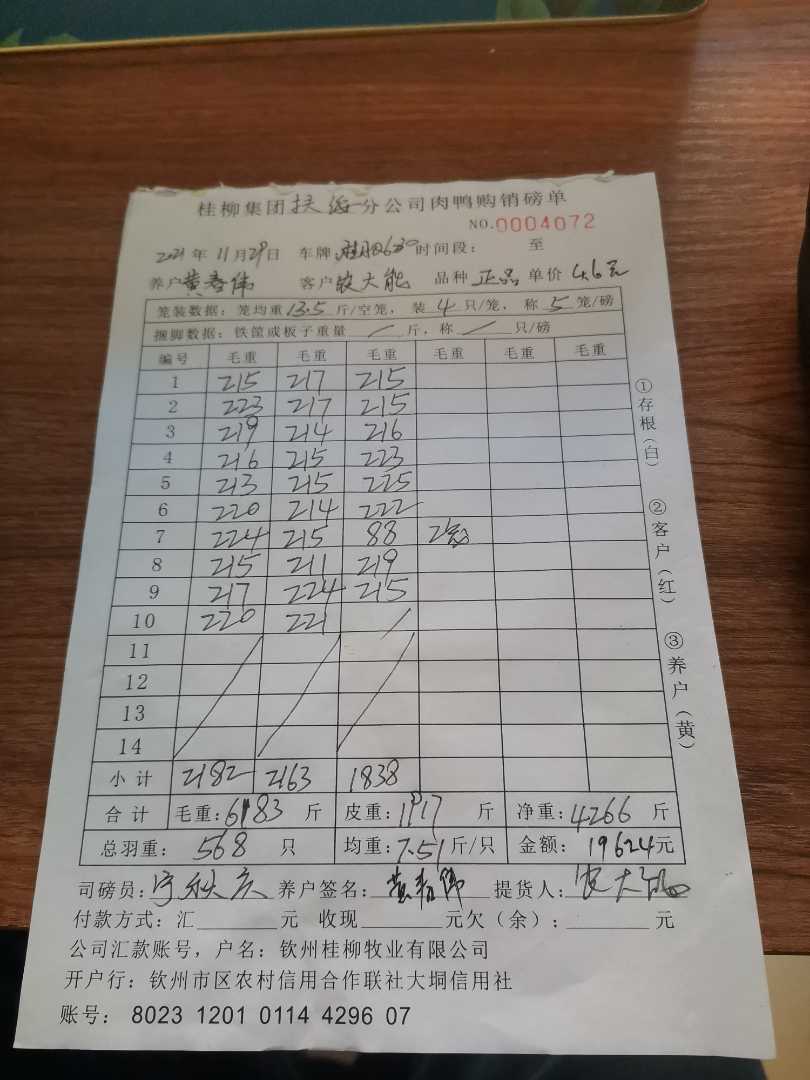 桂柳集团扶绥分公司肉鸭购销磅单
NO.0004072
2021年11月29日 车牌: 时间段: 至
养户黄春伟 客户农大能 品种 正品 单价 4.6元
笼装数据: 笼均重13.5斤/空笼, 装 4 只/笼, 称 5 笼/磅
捆脚数据: 铁筐或板子重量 / 斤, 称 / 只/磅
编号 毛重 毛重 毛重 毛重 毛重 毛重
1 215 217 215
2 223 217 215
3 219 214 216
4 216 215 223
5 213 215 225
6 220 214 222
7 224 215 88 2笼
8 215 211 219
9 217 224 215
10 220 221 /
11
12
13
14
小计 2182 2163 1838
合计 毛重:6183 斤 皮重:1917 斤 净重:4266 斤
总羽重: 568 只 均重:7.51斤/只 金额: 19624元
司磅员: 养户签名:黄春伟 提货人:农大能
付款方式: 汇 元 收现 元欠(余): 元
公司汇款账号, 户名: 钦州桂柳牧业有限公司
开户行: 钦州市区农村信用合作联社大垌信用社
账号: 8023 1201 0114 4296 07
①存根(白)
②客户(红)
③养户(黄)